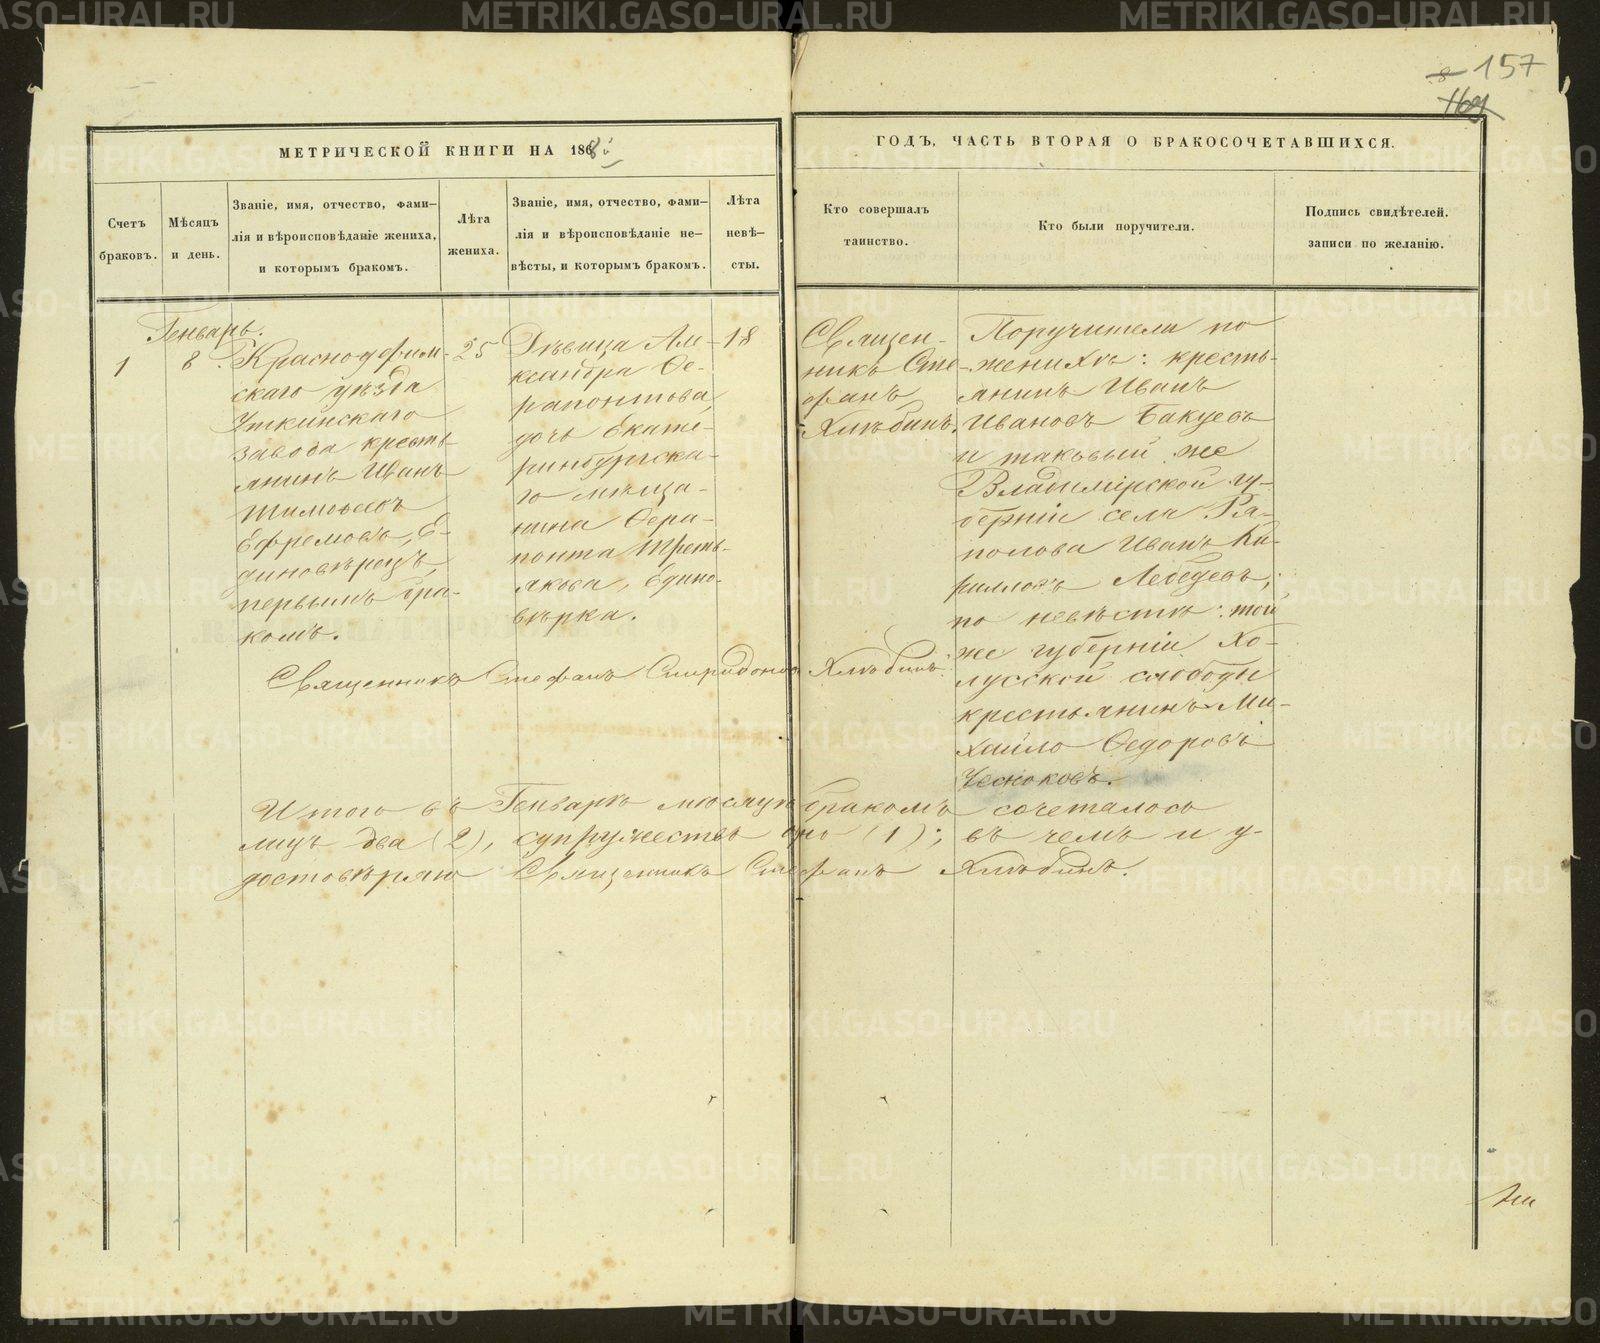 157
МЕТРИЧЕСКОЙ КНИГИ НА 1868й
ГОДЪ, ЧАСТЬ ВТОРАЯ О БРАКОСОЧЕТАВШИХСЯ.
Счетъ
браковъ.
Мѣсяцъ
и день.
Званіе, имя, отчество, фами-
лія и вѣроисповѣданіе жениха,
и которымъ бракомъ.
Лѣта
жениха.
Званіе, имя, отчество, фами-
лія и вѣроисповѣданіе не-
вѣсты, и которымъ бракомъ.
Лѣта
невѣ-
сты.
Кто совершалъ
таинство.
Кто были поручители.
Подпись свидѣтелей.
записи по желанію.
Генварь.
1
8.
Красноуфим-
скаго уѣзда
Уткинскаго
завода кресть
янинъ Иванъ
Тимофеевъ
Ефремовъ, Е-
диновѣрецъ,
первымъ бра-
комъ.
25
Дѣвица Але-
ксандра Ѳе-
рапонтова,
дочь Екате-
ринбургска-
го мѣща-
нина Ѳера-
понта Треть-
якова, Едино-
вѣрка.
18
Священ-
никъ Сте-
фанъ
Хлѣбинъ.
Поручители по
женихѣ: кресть-
янинъ Иванъ
Ивановъ Бакуевъ
и таковый же
Владимірской гу-
берніи села Ра-
полова Иванъ Ки-
рилловъ Лебедевъ;
по невѣстѣ: той
же губерніи Хо-
луйской слободы
крестьянинъ Ми-
хайло Ѳедоровъ
Чесноковъ.
Священникъ Стефанъ Спиридоновъ Хлѣбинъ.
Итого въ Генварѣ мѣсяцѣ бракомъ сочеталось
лицъ два (2), супружество одно (1); въ чемъ и у-
достовѣряю Священникъ Стефанъ Хлѣбинъ.
METRIKI.GASO-URAL.RU